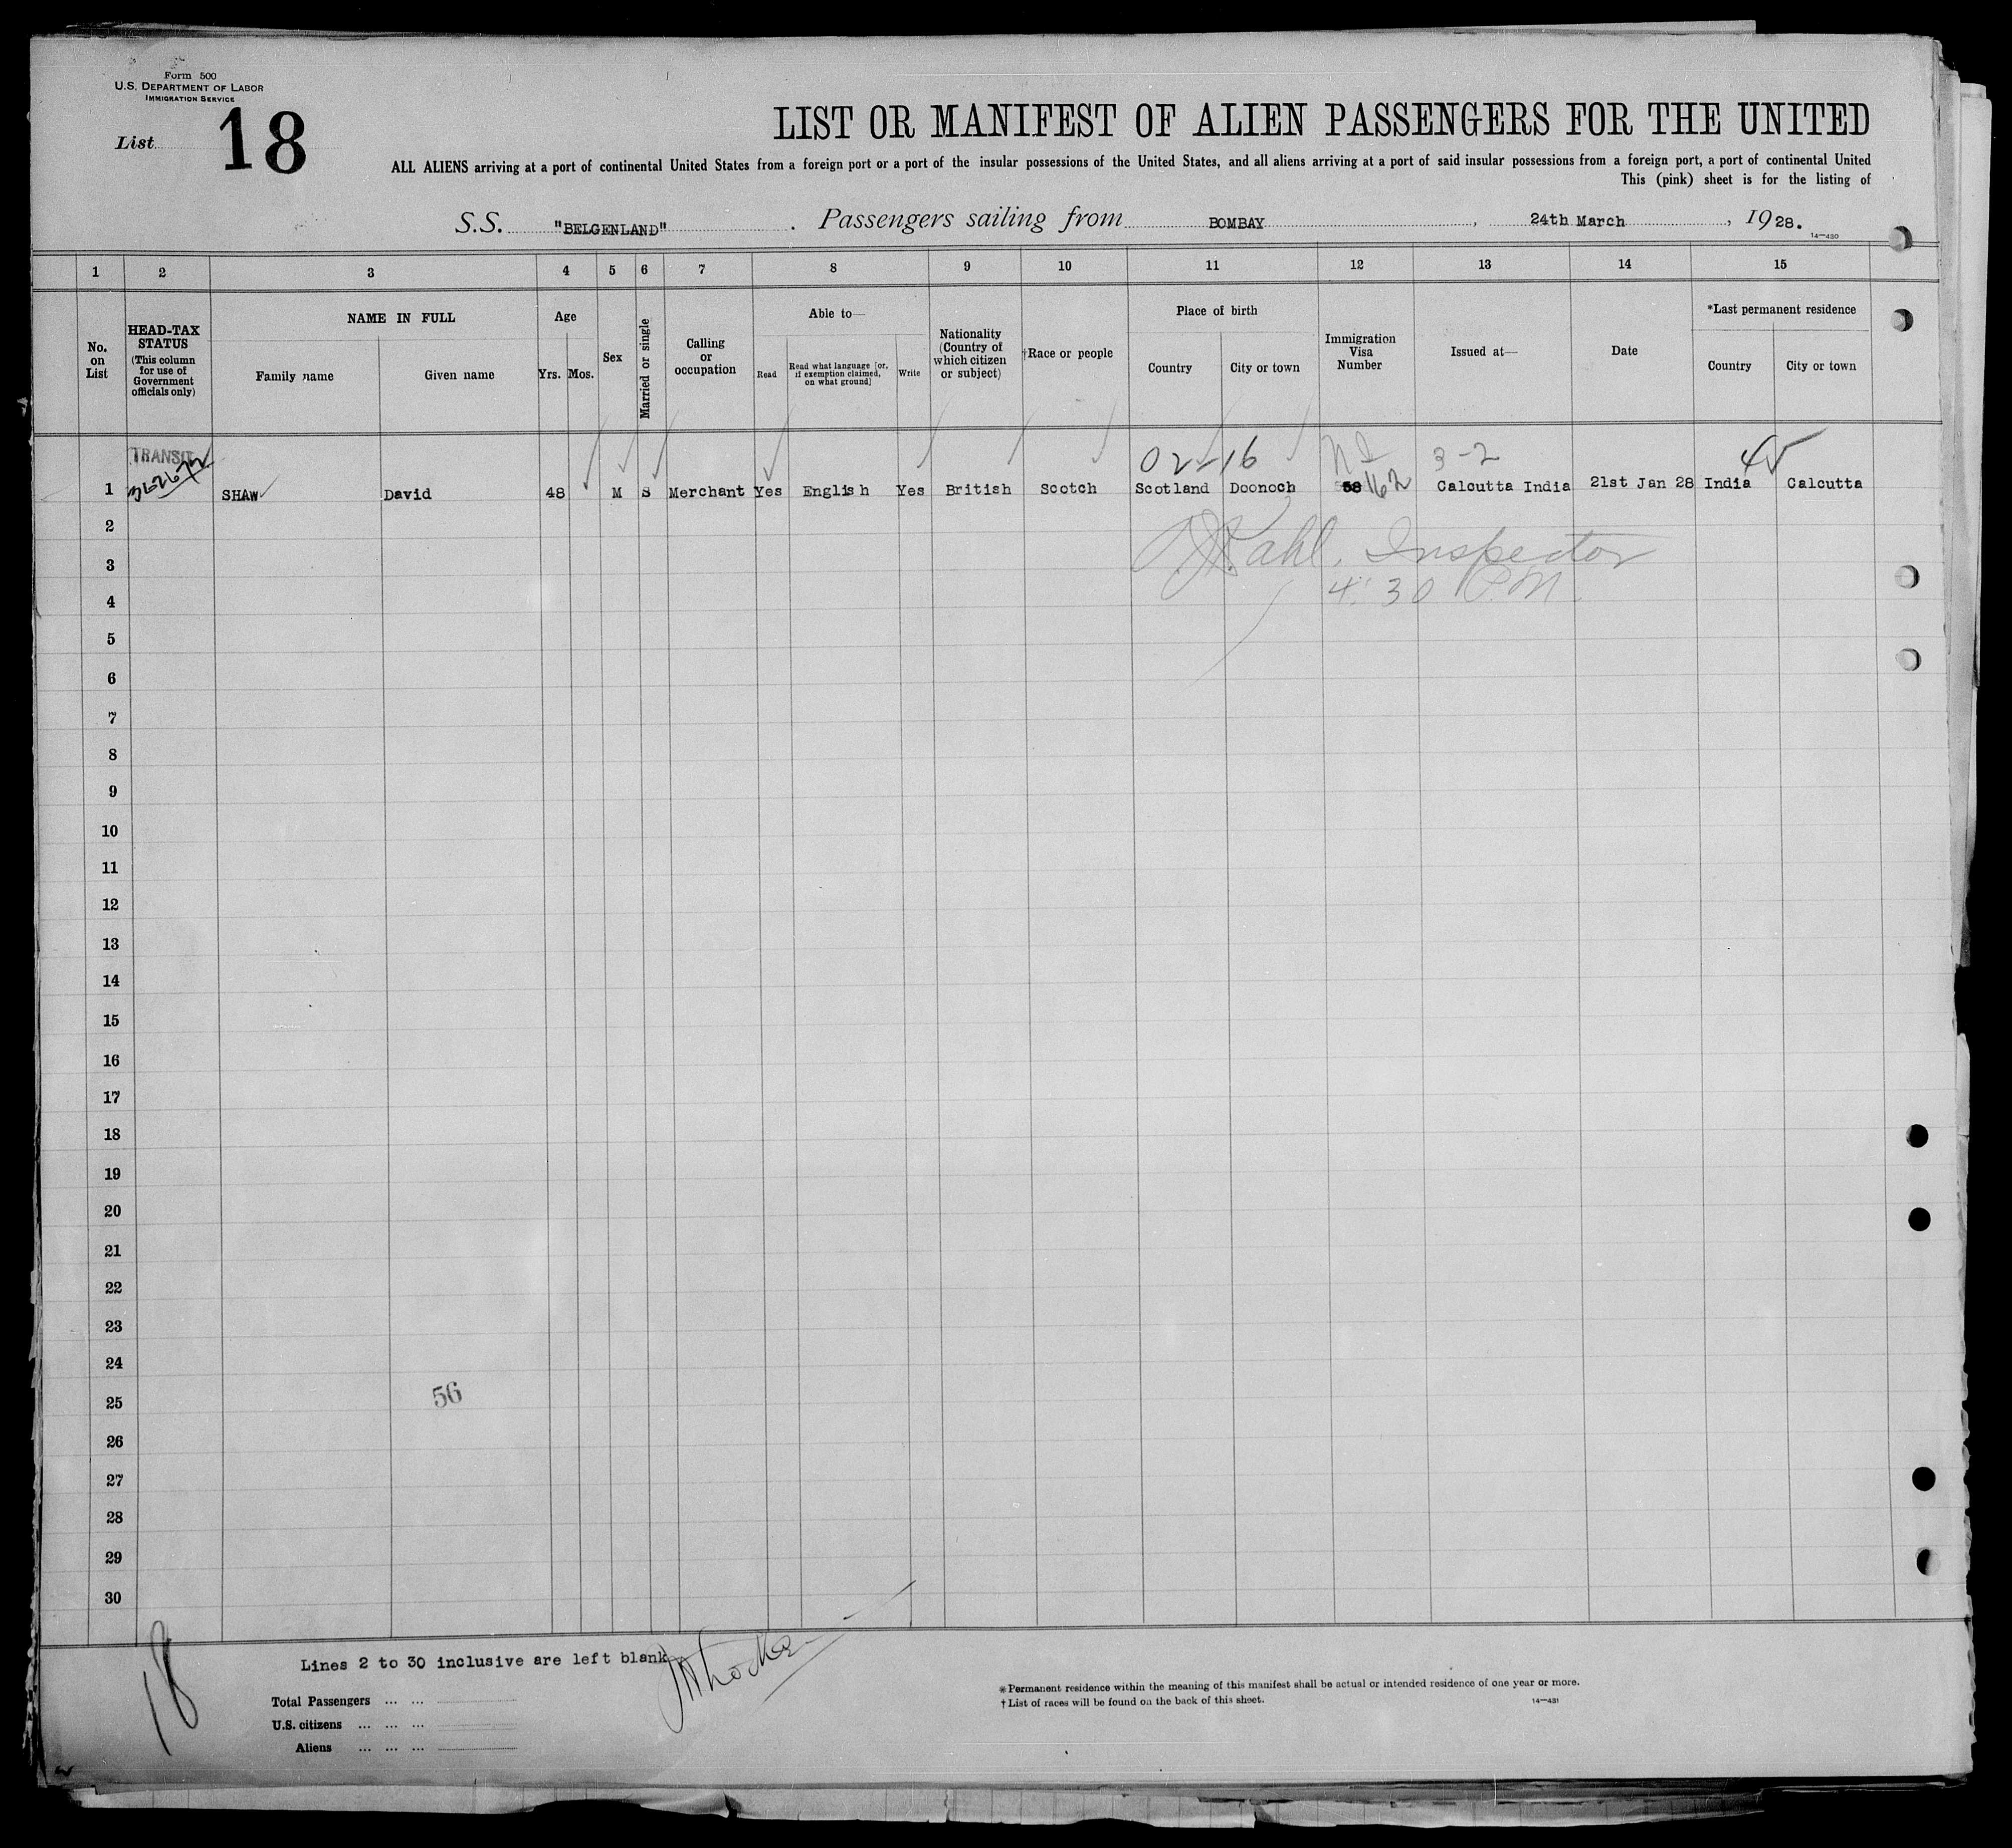 Form 500
U.S. DEPARTMENT OF LABOR
IMMIGRATION SERVICE
List 18
LIST OR MANIFEST OF ALIEN PASSENGERS FOR THE UNITED
ALL ALIENS arriving at a port of continental United States from a foreign port or a port of the insular possessions of the United States, and all aliens arriving at a port of said insular possessions from a foreign port, a port of continental United
This (pink) sheet is for the listing of
S.S. "BELGENLAND" . Passengers sailing from BOMBAY , 24th March , 1928.
14—430
1 2 3 4 5 6 7 8 9 10 11 12 13 14 15
No. on List
HEAD-TAX STATUS (This column for use of Government officials only)
NAME IN FULL
Family name Given name
Age
Yrs. Mos.
Sex
Married or single
Calling or occupation
Able to—
Read Read what language [or, if exemption claimed, on what ground] Write
Nationality (Country of which citizen or subject)
†Race or people
Place of birth
Country City or town
Immigration Visa Number
Issued at—
Date
*Last permanent residence
Country City or town
TRANSIT 02-16 3-2
1 SHAW David 48 M S Merchant Yes English Yes British Scotch Scotland Doonoch 58 162 Calcutta India 21st Jan 28 India Calcutta
2 Inspector
3
4:30 P.M.
4
5
6
7
8
9
10
11
12
13
14
15
16
17
18
19
20
21
22
23
24
56
25
26
27
28
29
30
18
Lines 2 to 30 inclusive are left blank
Total Passengers ... ...
U.S. citizens ... ... ...
Aliens ... ... ...
*Permanent residence within the meaning of this manifest shall be actual or intended residence of one year or more.
†List of races will be found on the back of this sheet.
14—431